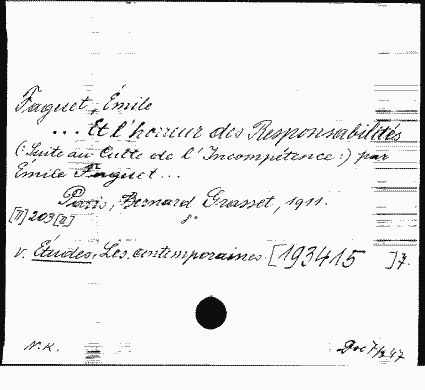 Faguet, Émile
... Et l'horreur des Responsabilités
(: Suite au Culte de l'Incompétence :) par
Émile Faguet ...
Paris, Bernard Grasset, 1911.
[II] 203 [II] 8°
v. Études, Les contemporaines. [193415 ] 7.
N.K.